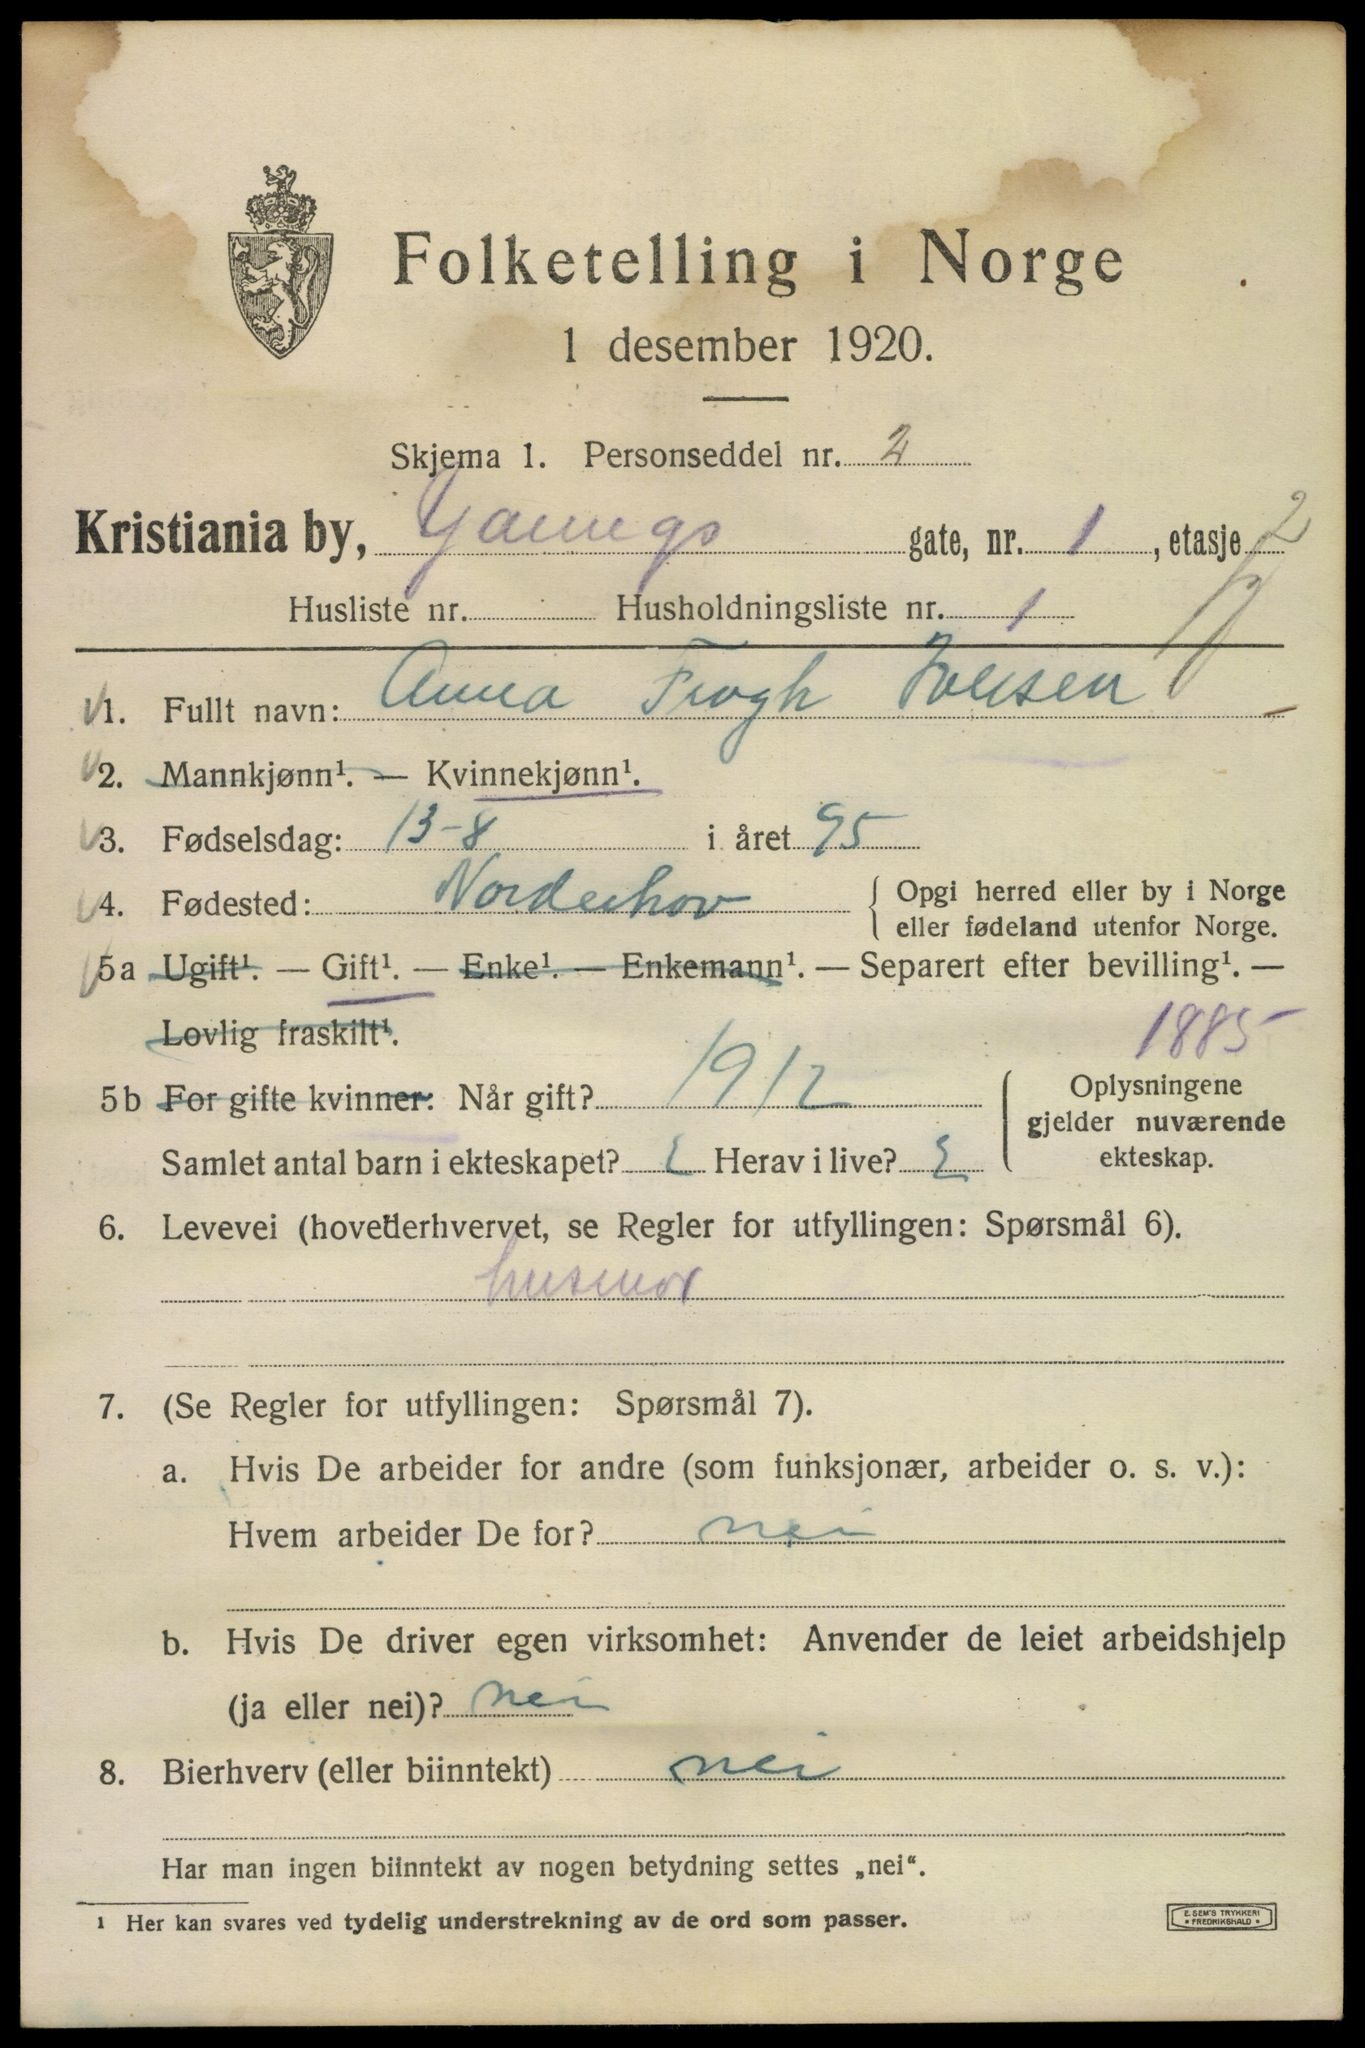 Folketelling i Norge
1 desember 1920.
Skjema 1. Personseddel nr. 2
Kristiania by, gate, nr. 1, etasje 2
Husliste nr. Husholdningsliste nr. 1
1. Fullt navn: Anna Frogh
2. Mannkjønn¹. — Kvinnekjønn¹.
3. Fødselsdag: 13-8 i året 95
4. Fødested: Norderhov { Opgi herred eller by i Norge
eller fødeland utenfor Norge.
5a Ugift¹. — Gift¹. — Enke¹. — Enkemann¹. — Separert efter bevilling¹. —
Lovlig fraskilt¹.
1885
5b For gifte kvinner: Når gift? 1912
Samlet antal barn i ekteskapet? Herav i live?
{ Oplysningene
gjelder nuværende
ekteskap.
6. Levevei (hovederhvervet, se Regler for utfyllingen: Spørsmål 6).
husmor
7. (Se Regler for utfyllingen: Spørsmål 7).
a. Hvis De arbeider for andre (som funksjonær, arbeider o. s. v.):
Hvem arbeider De for? nei
b. Hvis De driver egen virksomhet: Anvender de leiet arbeidshjelp
(ja eller nei)? nei
8. Bierhverv (eller biinntekt) nei
Har man ingen biinntekt av nogen betydning settes „nei“.
¹ Her kan svares ved tydelig understrekning av de ord som passer.
E. SEM'S TRYKKERI
* FREDRIKSHALD *